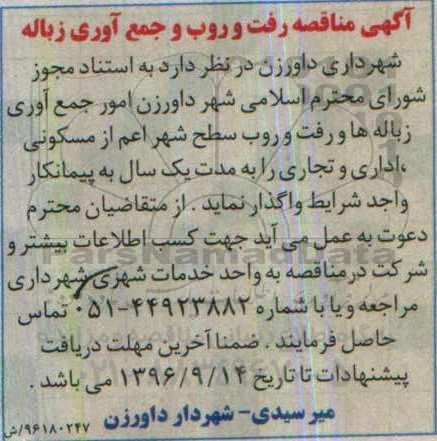 آگهی مناقصه رفت و روب و جمع آوری زباله
شهرداری داورزن در نظر دارد به استناد مجوز
شورای محترم اسلامی شهر داورزن امور جمع آوری
زباله ها و رفت و روب سطح شهر اعم از مسکونی
،اداری و تجاری را به مدت یک سال به پیمانکار
واجد شرایط واگذار نماید . از متقاضیان محترم
دعوت به عمل می آید جهت کسب اطلاعات بیشتر و
شرکت در مناقصه به واحد خدمات شهری شهرداری
مراجعه و یا با شماره ۴۴۹۲۳۸۸۲-۰۵۱ تماس
حاصل فرمایند . ضمنا آخرین مهلت دریافت
پیشنهادات تا تاریخ ۱۳۹۶/۹/۱۴ می باشد .
میر سیدی- شهردار داورزن
۹۶۱۸۰۲۴۷/ش
ParsNamadData